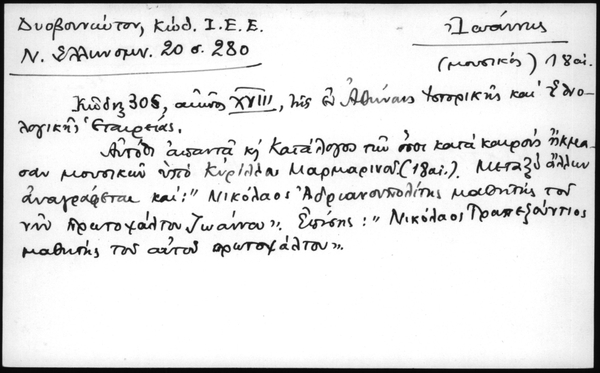 Δυοβουνιώτου, Κώδ. Ι. Ε. Ε.
Ν. Ἑλληνομν. 20 σ. 280
Ἰωάννης
(μουσικός) 18αἰ.
Κῶδιξ 305, αἰῶνος XVIII, τῆς ἐν Ἀθήναις Ἱστορικῆς καὶ Ἐθνο-
λογικῆς Ἑταιρείας.
Αὐτόθι ἀπαντᾶ κ᾽ Κατάλογος τῶν ὅσοι κατὰ καιροὺς ἤκμα-
σαν μουσικῶν ὑπὸ Κυρίλλου Μαρμαρινοῦ (18αἰ.). Μεταξὺ ἄλλων
ἀναγράφεται καί: "Νικόλαος Ἀδριανουπολίτης μαθητὴς τοῦ
νῦν πρωτοψάλτου Ἰωάννου". Ἐπίσης: "Νικόλαος Τραπεζούντιος
μαθητὴς τοῦ αὐτοῦ πρωτοψάλτου".